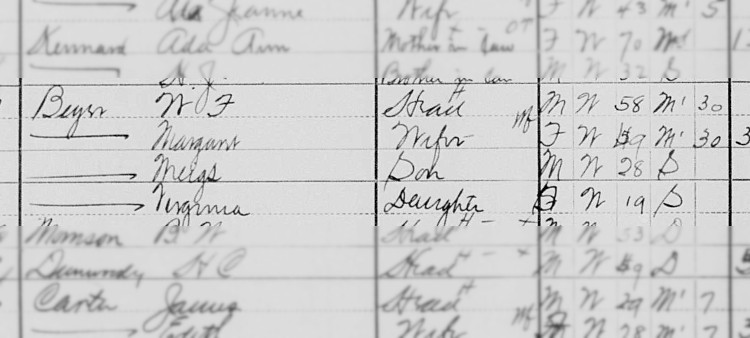 Ada Jeanne Wife F W 43 M' 5
Kennard Ada Ann Mother in law F W 70 Wd
H. J. Brother in law M W 32 S
Beyer W F Head M W 58 M' 30
Margaret Wife F W 59 M' 30 3
Meigs Son M W 28 S
Virginia Daughter F W 19 S
B W Head M W 53 D
H C Head M W 59 D
Carter James Head M W 29 M' 7
Edith Wife F W 28 M' 7